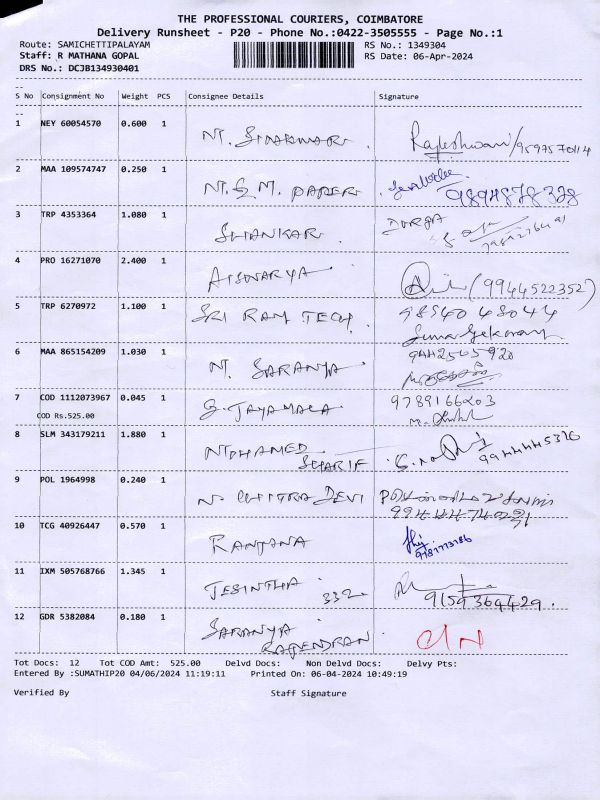 THE PROFESSIONAL COURIERS, COIMBATORE
Delivery Runsheet - P20 - Phone No.:0422-3505555 - Page No.:1
Route: SAMICHETTIPALAYAM RS No.: 1349304
Staff: R MATHANA GOPAL RS Date: 06-Apr-2024
DRS No.: DCJB134930401
S No Consignment No Weight PCS Consignee Details Signature
1 NEY 60054570 0.600 1
Rajeshwari/9597570114
2 MAA 109574747 0.250 1
9894878328
3 TRP 4353364 1.080 1 SHANKAR DURGA
4 PRO 16271070 2.400 1 AISWARYA (9944522352)
5 TRP 6270972 1.100 1 SRI RAM TECH. 98540 48044
6 MAA 865154209 1.030 1 SARANYA
7 COD 1112073967 0.045 1 S. JAYAMALA 9789166203
COD Rs.525.00
8 SLM 343179211 1.880 1 MOHAMED SHARIF 9944445320
9 POL 1964998 0.240 1 N. CHITRA DEVI
10 TCG 40926447 0.570 1 RANJANA
11 IXM 505768766 1.345 1 JESINTHA 332 9159364429.
12 GDR 5382084 0.180 1 SARANYA RAJENDRAN
Tot Docs: 12 Tot COD Amt: 525.00 Delvd Docs: Non Delvd Docs: Delvy Pts:
Entered By :SUMATHIP20 04/06/2024 11:19:11 Printed On: 06-04-2024 10:49:19
Verified By Staff Signature